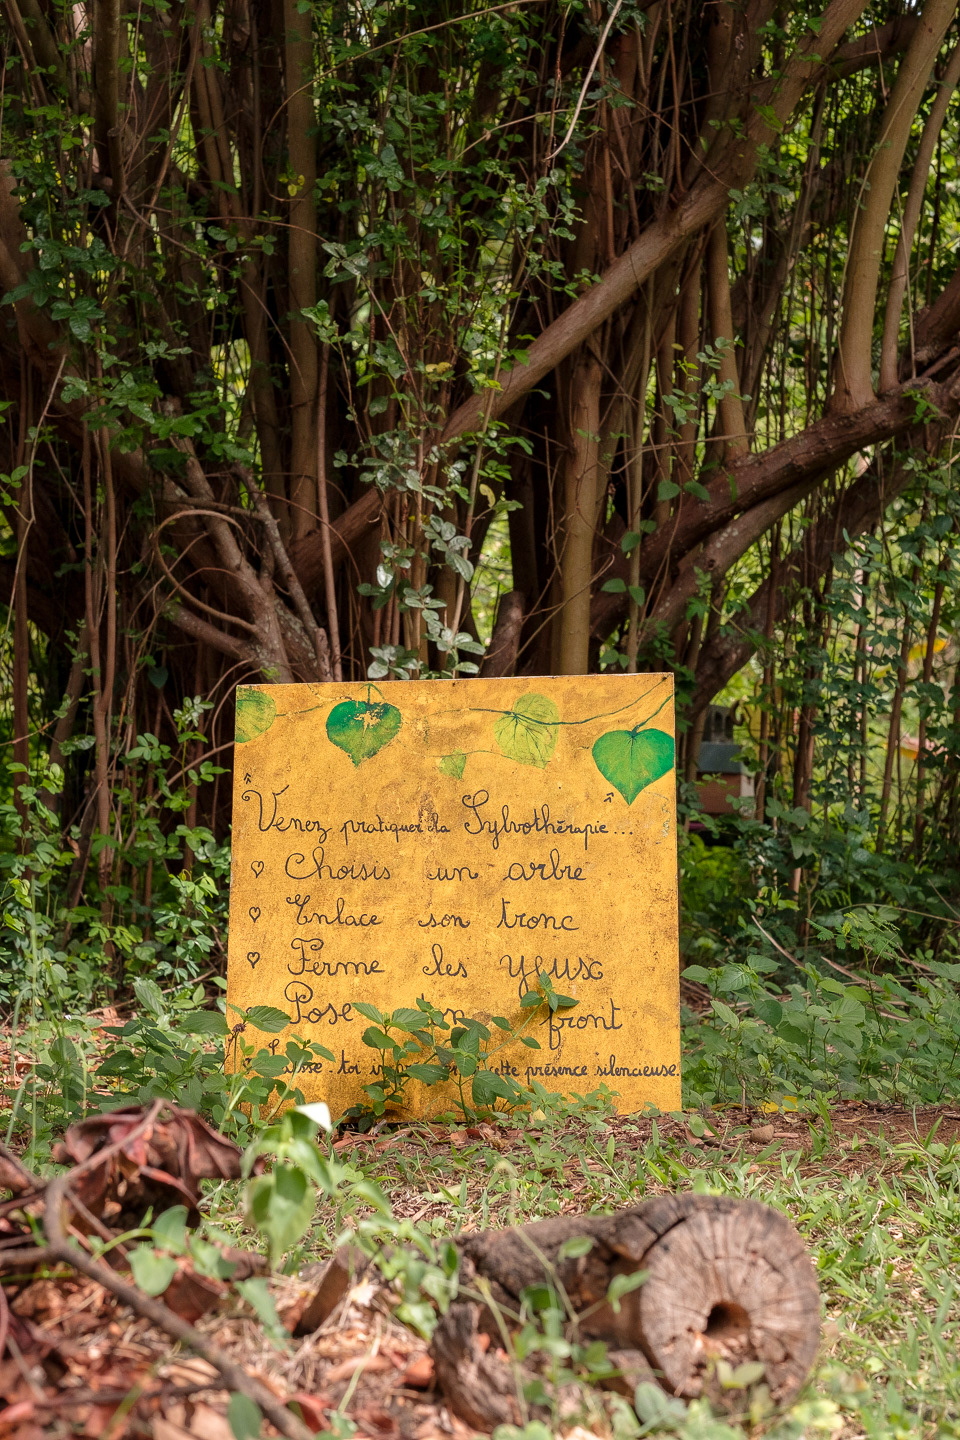 Venez pratiquer la Sylvothérapie...
Choisis un arbre
Enlace son tronc
Ferme les yeux
Pose front
toi cette présence silencieuse.